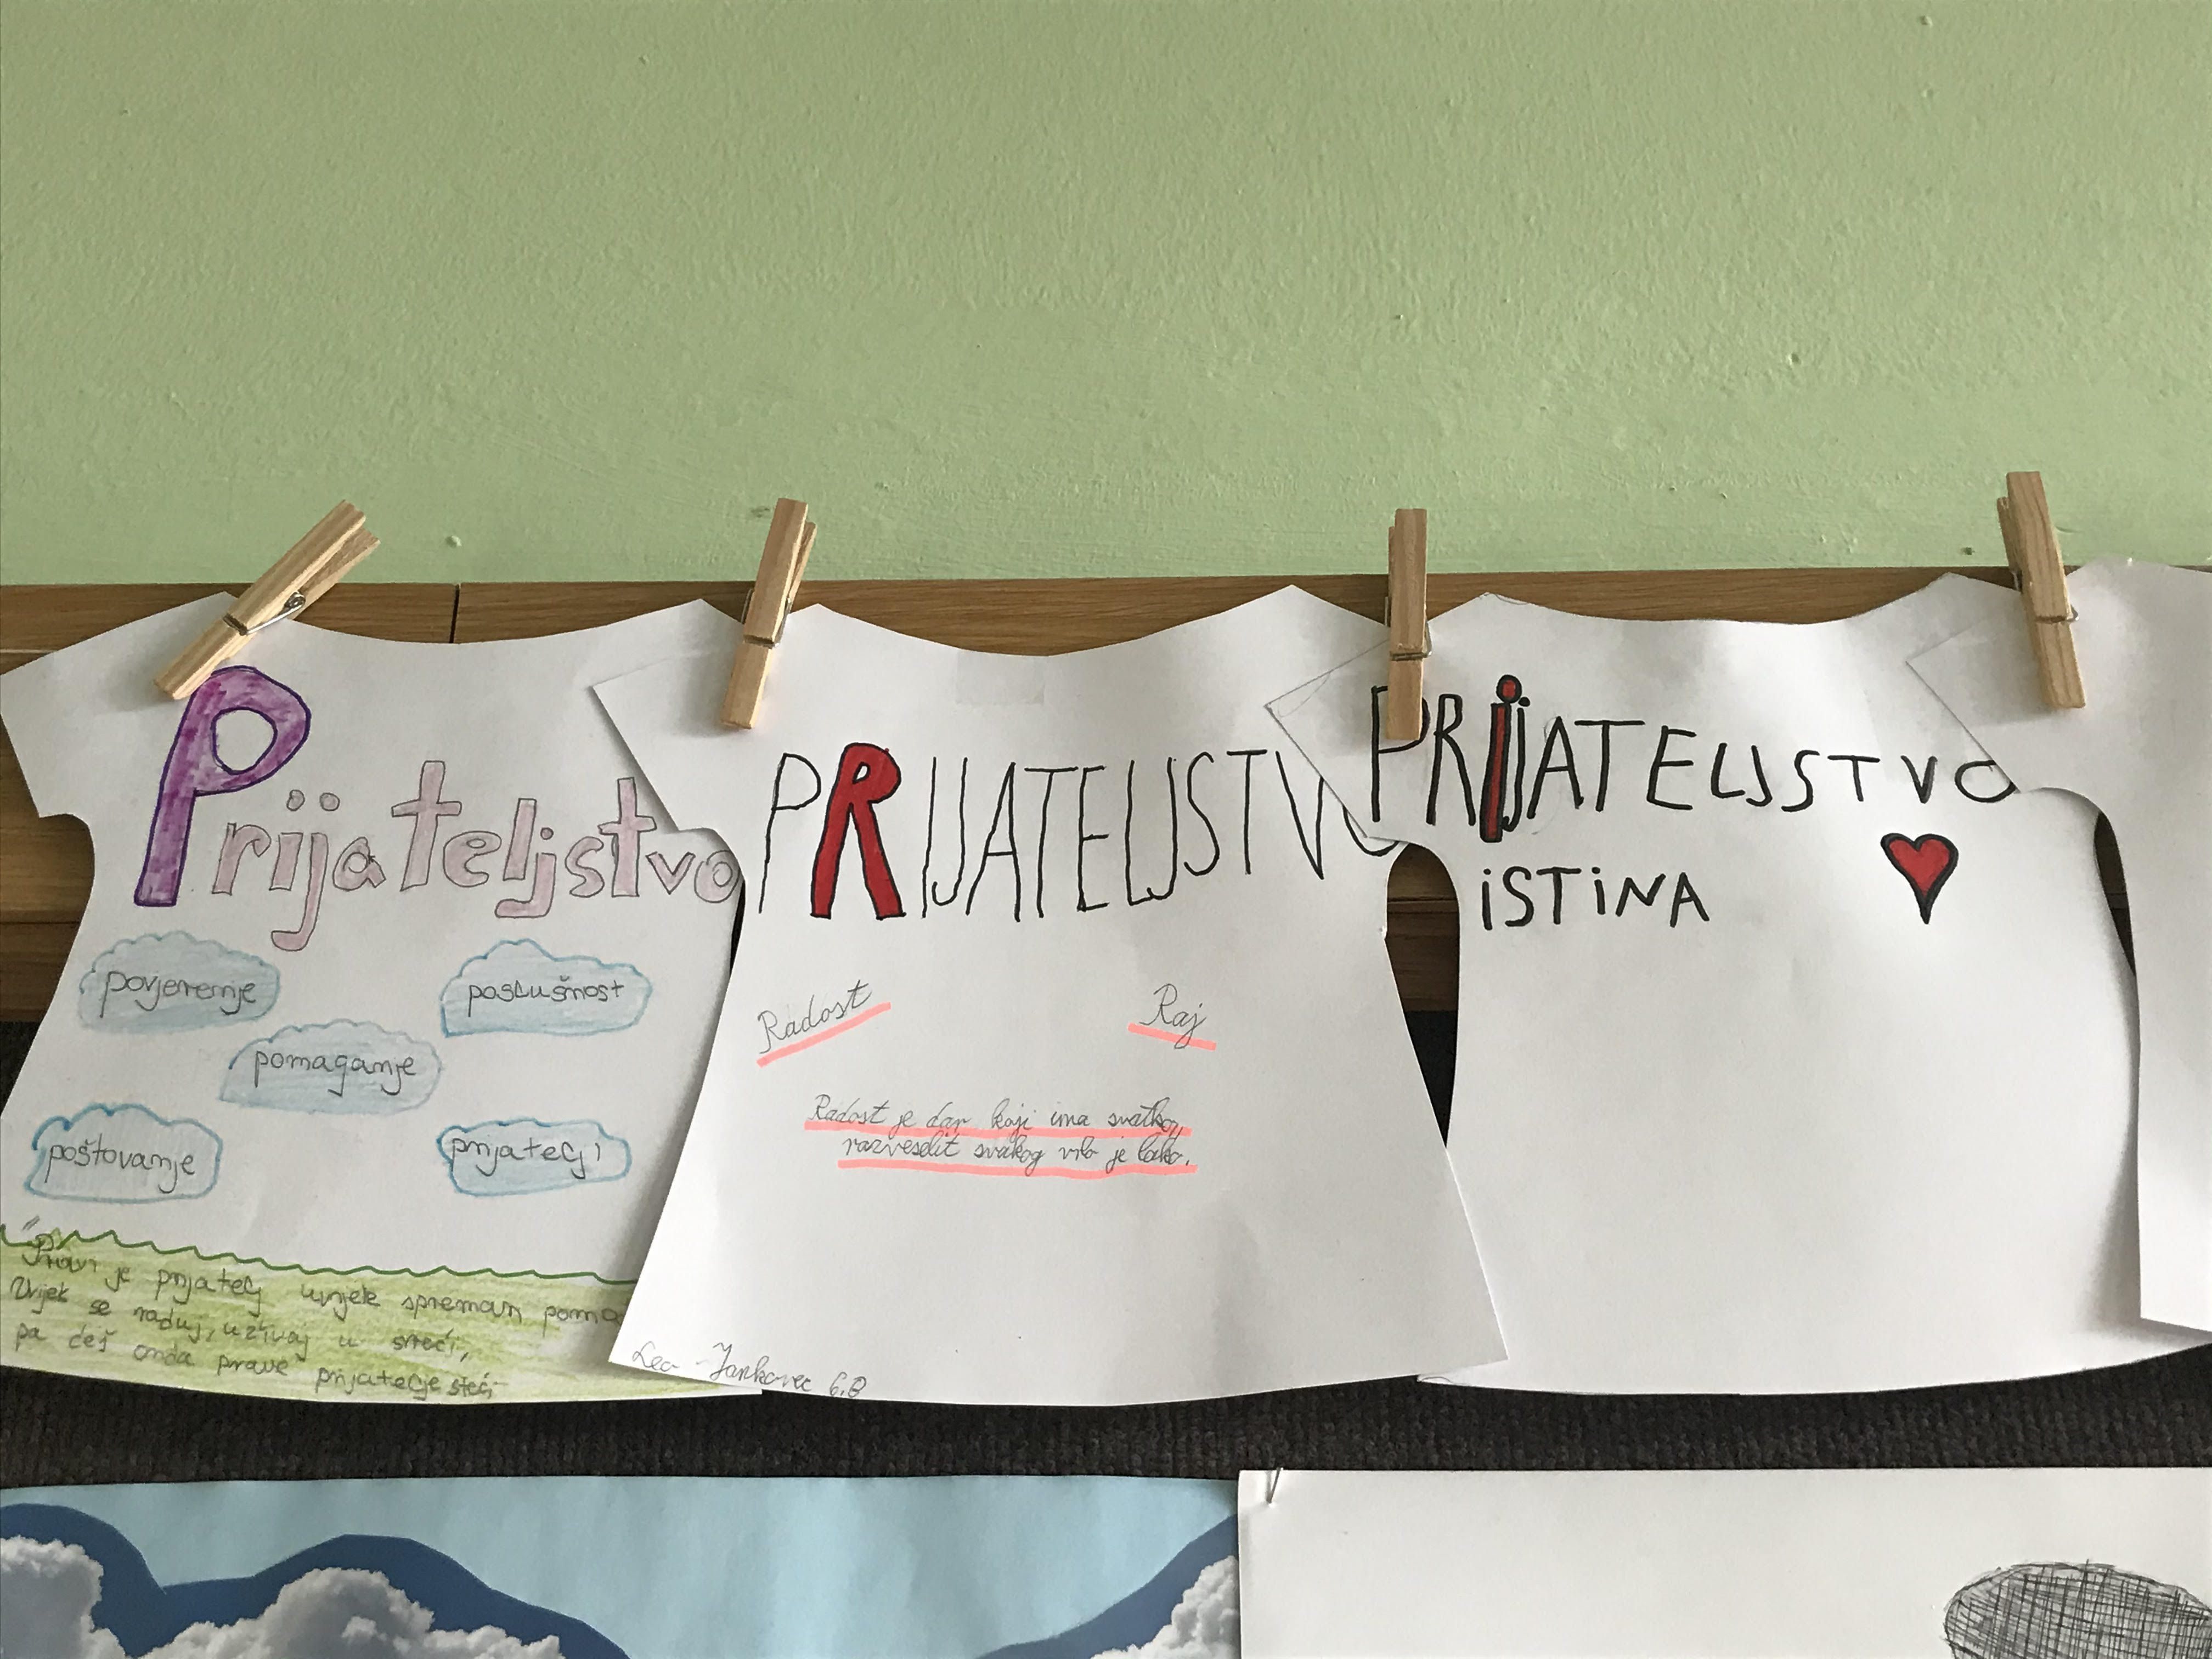 Prijateljstvo
povjerenje
poslušnost
pomaganje
poštovanje
prijatelji
"Pravi je prijatelj uvijek spreman poma
Uvijek se raduj, uživaj u sreći,
pa ćeš onda prave prijatelje steći
PRIJATELJSTVO
Radost
Raj
Radost je dar koji ima svatko,
razveselit svakog vrlo je lako.
Lea Jankovec 6.B
PRIJATELJSTVO
ISTINA